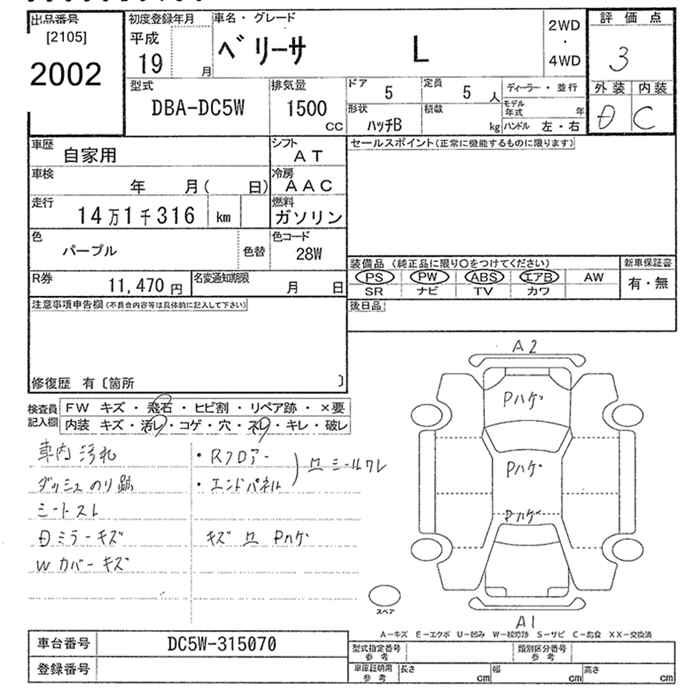 出品番号
[2105]
2002
初度登録年月
平成
19 月
車名・グレード
ベリーサ L
2WD
・
4WD
評価点
3
外装 内装
C
型式
DBA-DC5W
排気量
1500
CC
ドア 5
定員 5 人
ディーラー・並行
形状
ハッチB
積載
kg
モデル年式 年
ハンドル 左・右
車歴 自家用
シフト AT
セールスポイント(正常に機能するものに限ります)
車検 年 月( 日)
冷房 AAC
走行 14万1千316 km
燃料 ガソリン
色 パープル 色替
色コード 28W
装備品 (純正品に限り○をつけてください)
新車保証書
有・無
PS PW ABS エアB AW
SR ナビ TV カワ
R券 11,470 円
名変通知期限 月 日
後日品
注意事項申告欄(不具合内容等は具体的に記入して下さい)
修復歴 有〔箇所 〕
検査員記入欄
FW キズ・飛石・ヒビ割・リペア跡・×要
内装 キズ・汚レ・コゲ・穴・スレ・キレ・破レ
車内汚れ
・Rフロアー
ダッシュのり跡
・エンドパネル
シールワレ
シートスレ
ミラーキズ
キズ Pハゲ
Wカバーキズ
A2
Pハゲ
Pハゲ
Pハゲ
A1
スペア
A-キズ E-エクボ U-凹み W-板跡 S-サビ C-腐食 XX-交換済
車台番号 DC5W-315070
登録番号
型式指定番号 参考
類別区分番号 参考
車庫証明用 参考
長さ cm
幅 cm
高さ cm